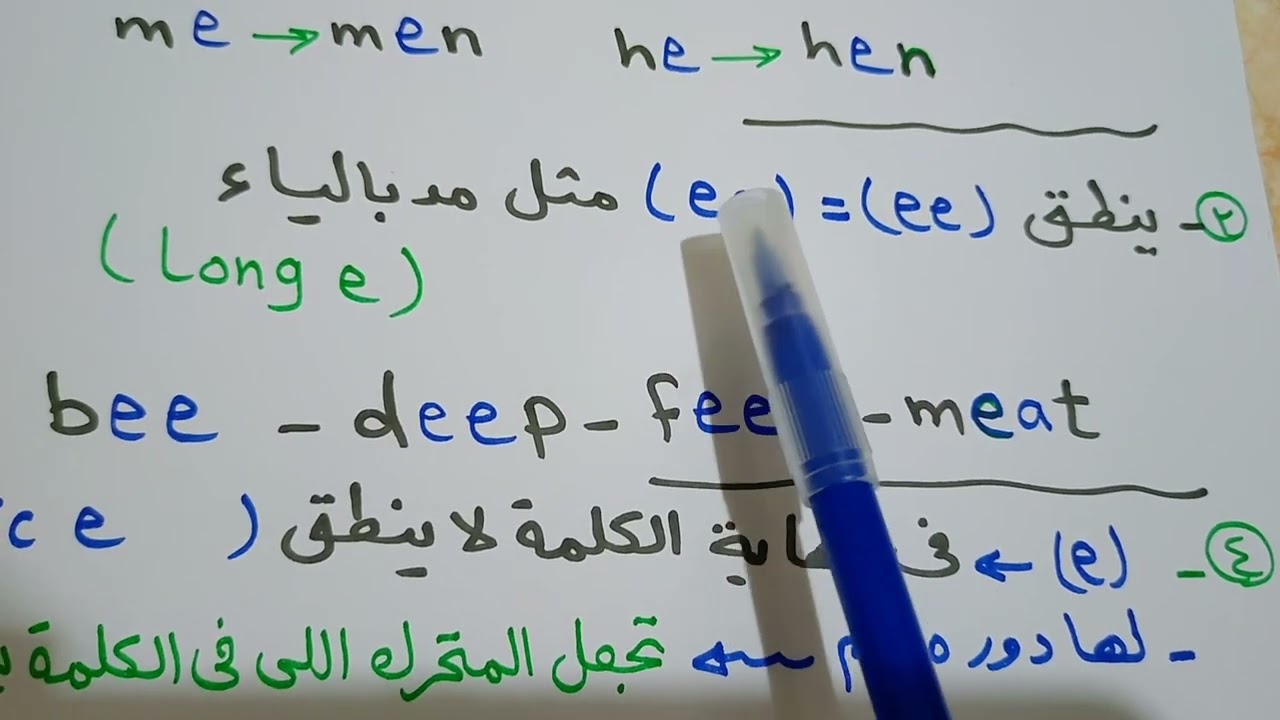 me → men he → hen
٢- ينطق (ee) = (e) مثل مد بالياء
(Long e)
bee - deep - fee - meat
٤- (e) ← فى الكلمة لا ينطق ( ce
- لها دور تجعل المتحرك اللى فى الكلمة